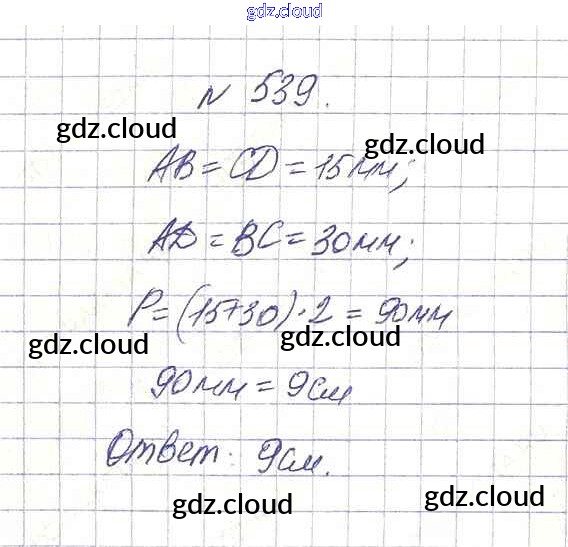 gdz.cloud
№ 539.
gdz.cloud gdz.cloud
AB = CD = 15мм;
AD = BC = 30мм;
P = (15+30)·2 = 90мм
gdz.cloud gdz.cloud
90мм = 9см
Ответ: 9см.
gdz.cloud gdz.cloud